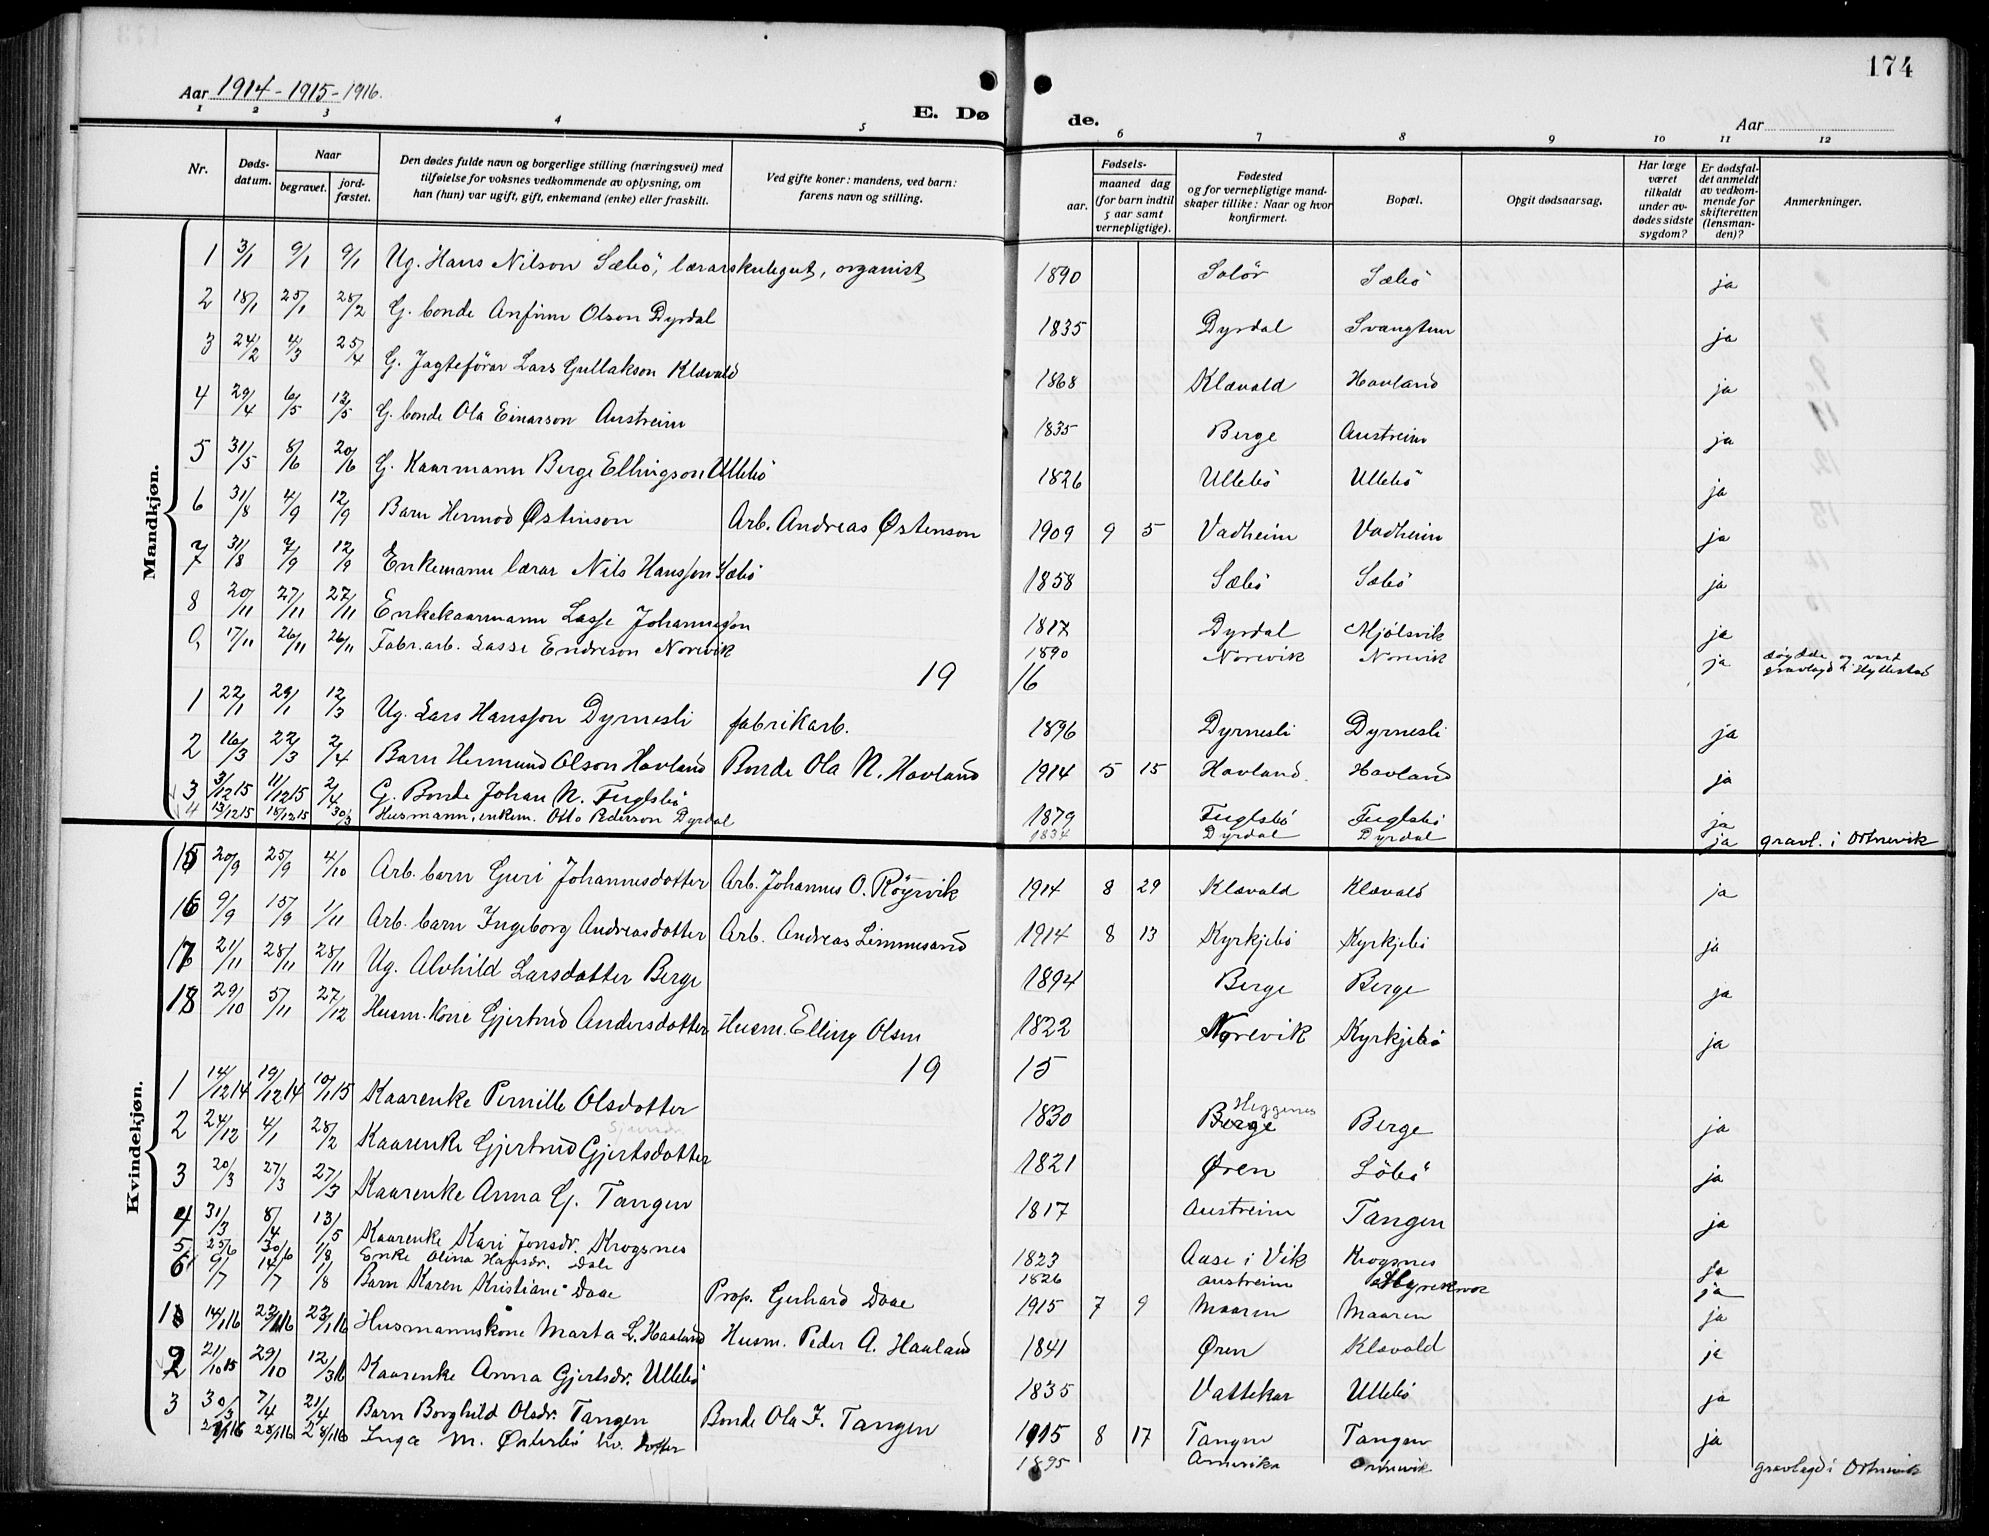 174
Aar 1914-1915-1916.
E. Dø de.
Aar
1 2 3 4 5 6 7 8 9 10 11 12
Nr.
Døds-datum.
Naar
begravet.
jord-fæstet.
Den dødes fulde navn og borgerlige stilling (næringsvei) med
tilføielse for voksnes vedkommende av oplysning, om
han (hun) var ugift, gift, enkemand (enke) eller fraskilt.
Ved gifte koner: mandens, ved barn:
farens navn og stilling.
Fødsels-
aar.
maaned dag
(for barn indtil
5 aar samt
vernepligtige).
Fødested
og for vernepligtige mand-
skaper tillike: Naar og hvor
konfirmert.
Bopæl.
Opgit dødsaarsag.
Har læge
været
tilkaldt
under av-
dødes sidste
sygdom?
Er dødsfal-
det anmeldt
av vedkom-
mende for
skifteretten
(lensman-
den)?
Anmerkninger.
Mandkjøn.
1 3/1 9/1 9/1 Ug. Hans Nilson Sæbö, lærarskulegut, organist 1890 Solör Sæbö ja
2 18/1 25/1 28/2 G. bonde Anfinn Olson Dyrdal 1835 Dyrdal Svangtun ja
3 24/2 4/3 25/4 G. Jagteförar Lars Gullakson Klævold 1868 Klævold Hovland ja
4 29/4 6/5 13/5 G. bonde Ola Einarson Austreim 1835 Berge Austreim ja
5 31/5 8/6 20/6 G. Kaarmann Berge Ellingson Ullebö 1826 Ullebö Ullebö ja
6 31/8 4/9 12/9 Barn Hermod Østenson Arb. Andreas Østenson 1909 9 5 Vadheim Vadheim ja
7 31/8 7/9 12/9 Enkemann lærar Nils Hansson Sæbö 1858 Sæbö Sæbö ja
8 20/11 27/11 27/11 Enkekaarmann Lasse Johannesson 1817 Dyrdal Mjölsvik ja
9 17/11 26/11 26/11 Fabr.arb. Lasse Endreson Norevik 1890 Norevik Norevik ja döydde og vart
gravlagd i Hyllestad
19 16
1 22/1 29/1 12/3 Ug. Lars Hansson Dyrnesli fabrikarb. 1896 Dyrnesli Dyrnesli ja
2 16/3 22/3 2/4 Barn Hermund Olson Hovland Bonde Ola N. Hovland 1914 5 15 Hovland Hovland ja
3 3/12 15 11/12 15 2/4 G. Bonde Johan N. Fuglsbö 1879 Fuglsbö Fuglsbö ja
4 13/12 15 18/12 15 30/3 Husmann, enkem. Otto Pederson Dyrdal 1834 Dyrdal Dyrdal ja gravl. i Ortnevik
Kvindekjøn.
15 20/9 25/9 4/10 Arb. barn Guri Johannesdotter Arb. Johannes O. Röyrvik 1914 8 29 Klævold Klævold ja
16 9/9 15/9 1/11 Arb. barn Ingeborg Andreasdotter Arb. Andreas Limmesand 1914 8 13 Kyrkjebö Kyrkjebö ja
17 21/11 28/11 28/11 Ug. Alvhild Larsdotter Berge 1894 Berge Berge ja
18 29/10 5/11 27/12 Husm. kone Gjertrud Andersdotter Husm. Elling Olsen 1822 Norevik Kyrkjebö ja
19 15
1 14/12 14 19/12 14 10/1 15 Kaarenke Pernille Olsdotter 1830 Heggenes Berge Berge ja
2 24/12 4/1 28/2 Kaarenke Gjertrud Gjertsdotter 1821 Øren Löbö ja
3 20/3 27/3 27/3 Kaarenke Anna G. Tangen 1817 Austreim Tangen ja
4 31/3 8/4 13/5 Kaarenke Kari Jonsdr. Krogsnes 1823 Aase i Vik Krogsnes ja
5 25/6 30/6 1/8 Enke Olina Hansdr. Dale 1826 Austreim ja
6 9/7 14/7 1/8 Barn Karen Kristiane Daae Prop. Gerhard Daae 1915 7 9 Maaren Maaren ja
1 14/1 16 23/1 16 23/1 16 Husmannskone Marta L. Haaland Husm. Peder A. Haaland 1841 Øren Klævold ja
2 21/10 15 29/10 12/3 16 Kaarenke Anna Gjertsdr. Ullebö 1835 Vattekar Ullebö ja
3 30/3 7/4 21/4 Barn Borghild Olsdr. Tangen Bonde Ola J. Tangen 1915 8 17 Tangen Tangen ja
28/1 16 28/1 16 Inga M. Østerbö dotter 1895 Amerika Ortnevik gravlagd i Ortnevik